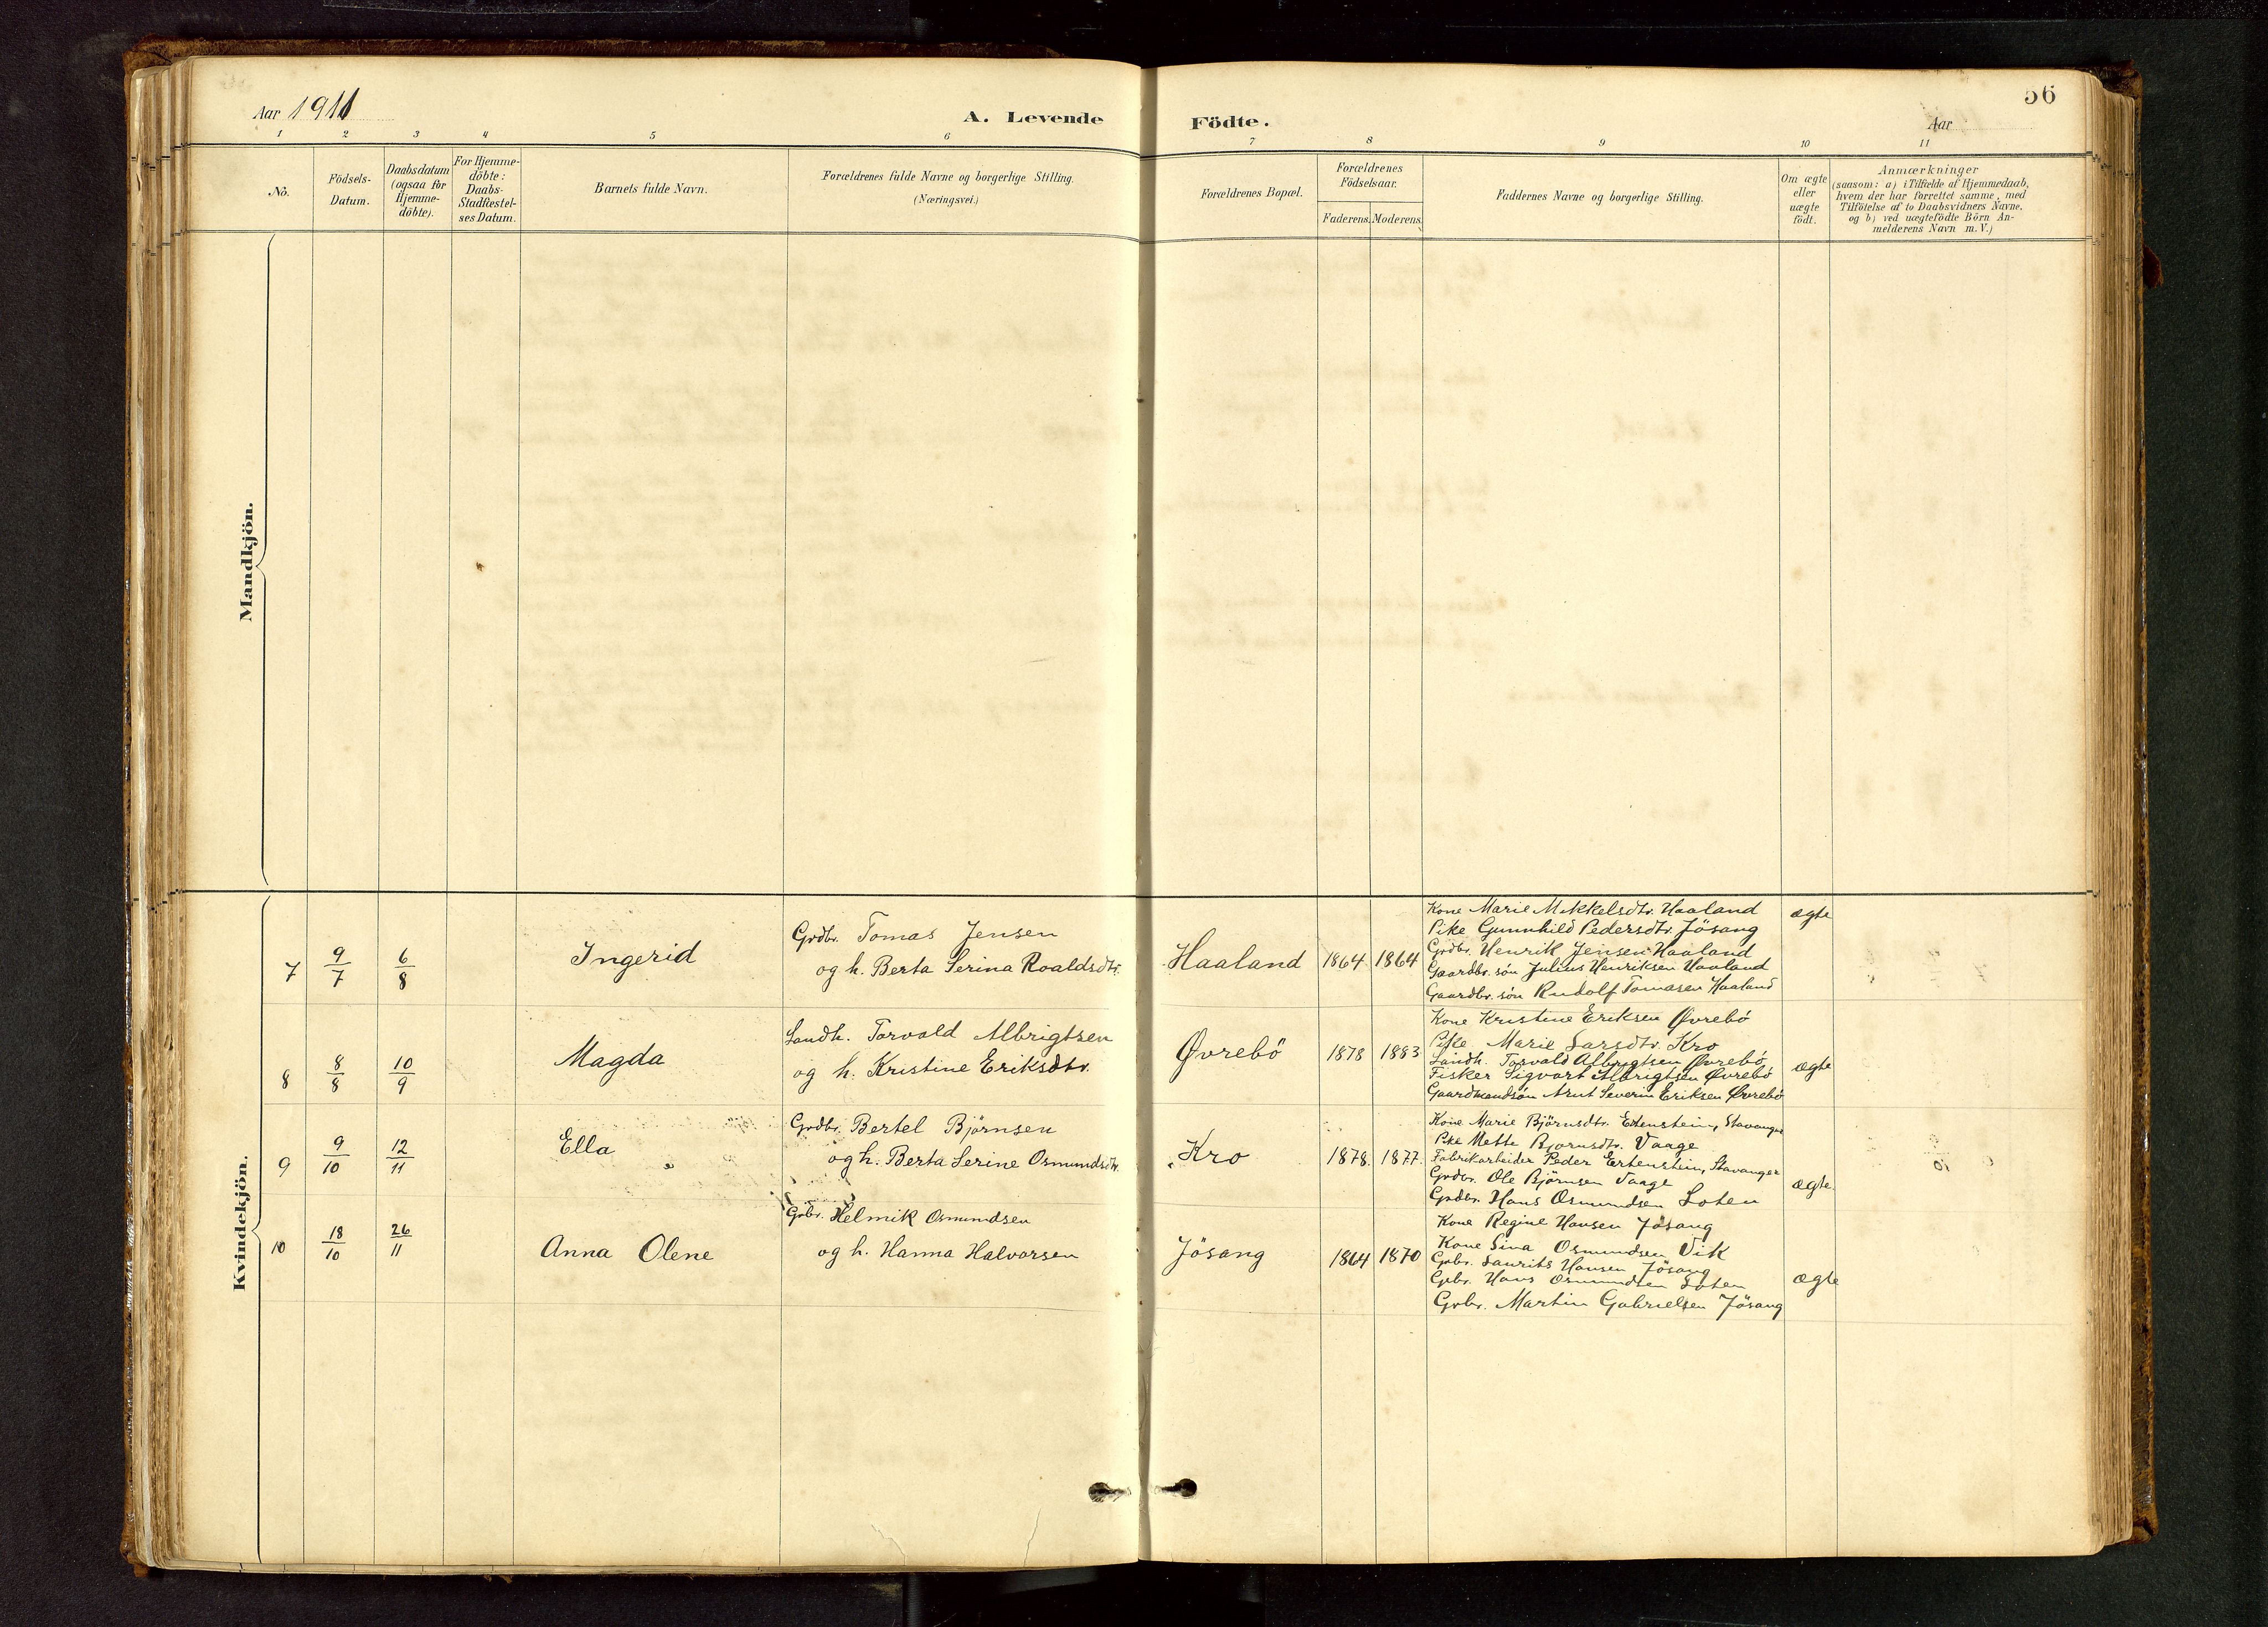 56
Aar 1911
A. Levende Födte.
Aar
1 2 3 4 5 6 7 8 9 10 11
No.
Födsels-
Datum.
Daabsdatum
(ogsaa for
Hjemme-
döbte).
For Hjemme-
döbte:
Daabs-
Stadfæstel-
ses Datum.
Barnets fulde Navn.
Forældrenes fulde Navne og borgerlige Stilling.
(Næringsvei.)
Forældrenes Bopæl.
Forældrenes
Födselsaar.
Faderens. Moderens.
Faddernes Navne og borgerlige Stilling.
Om ægte
eller
uægte
födt.
Anmærkninger
(saasom: a) i Tilfælde af Hjemmedaab,
hvem der har forrettet samme, med
Tilföielse af to Daabsvidners Navne,
og b) ved uægtefödte Börn An-
melderens Navn m. V.)
Mandkjön.
Kvindekjön.
7 9/7 6/8 Ingerid
Grdbr. Tomas Jensen
og h. Berta Serina Roaldsdtr.
Haaland 1864. 1864
Kone Marie Mikkelsdtr. Haaland
Pike Gunnhild Pedersdtr. Jösang
Grdbr. Henrik Jensen Haaland
Gaardbr. sön Julius Henriksen Haaland
Gaardbr. sön Rudolf Tomasen Haaland
ægte
8 8/8 10/9 Magda
Landh. Torvald Albrigtsen
og h. Kristine Eriksdtr.
Øvrebö 1878 1883
Kone Kristine Eriksen Øvrebö
Pike Marie Larsdtr. Kro
Landh. Torvald Albrigtsen Øvrebö
Fisker Sigvart Albrigtsen Øvrebö
Gaardmandsön Arnt Severin Eriksen Øvrebö
ægte
9 9/10 12/11 Ella
Grdbr. Bertel Björnsen
og h. Berta Serine Osmundsdtr.
Kro 1878. 1877.
Kone Marie Björnsdtr. Ertenstein, Stavanger
Pike Mette Bjornsdtr. Vaage
Fabrikarbeider Peder Ertenstein, Stavanger
Grdbr. Ole Björnsen Vaage
Grdbr. Hans Osmundsen Loten
ægte.
10 18/10 26/11 Anna Olene
Gbr. Helmik Osmundsen
og h. Hanna Halvorsen
Jösang 1864 1870
Kone Regine Hansen Jösang
Kone Sina Osmundsen Vik
Gbr. Laurits Hansen Jösang
Gbr. Hans Osmundsen Loten
Gbr. Martin Gabrielsen Jösang
ægte